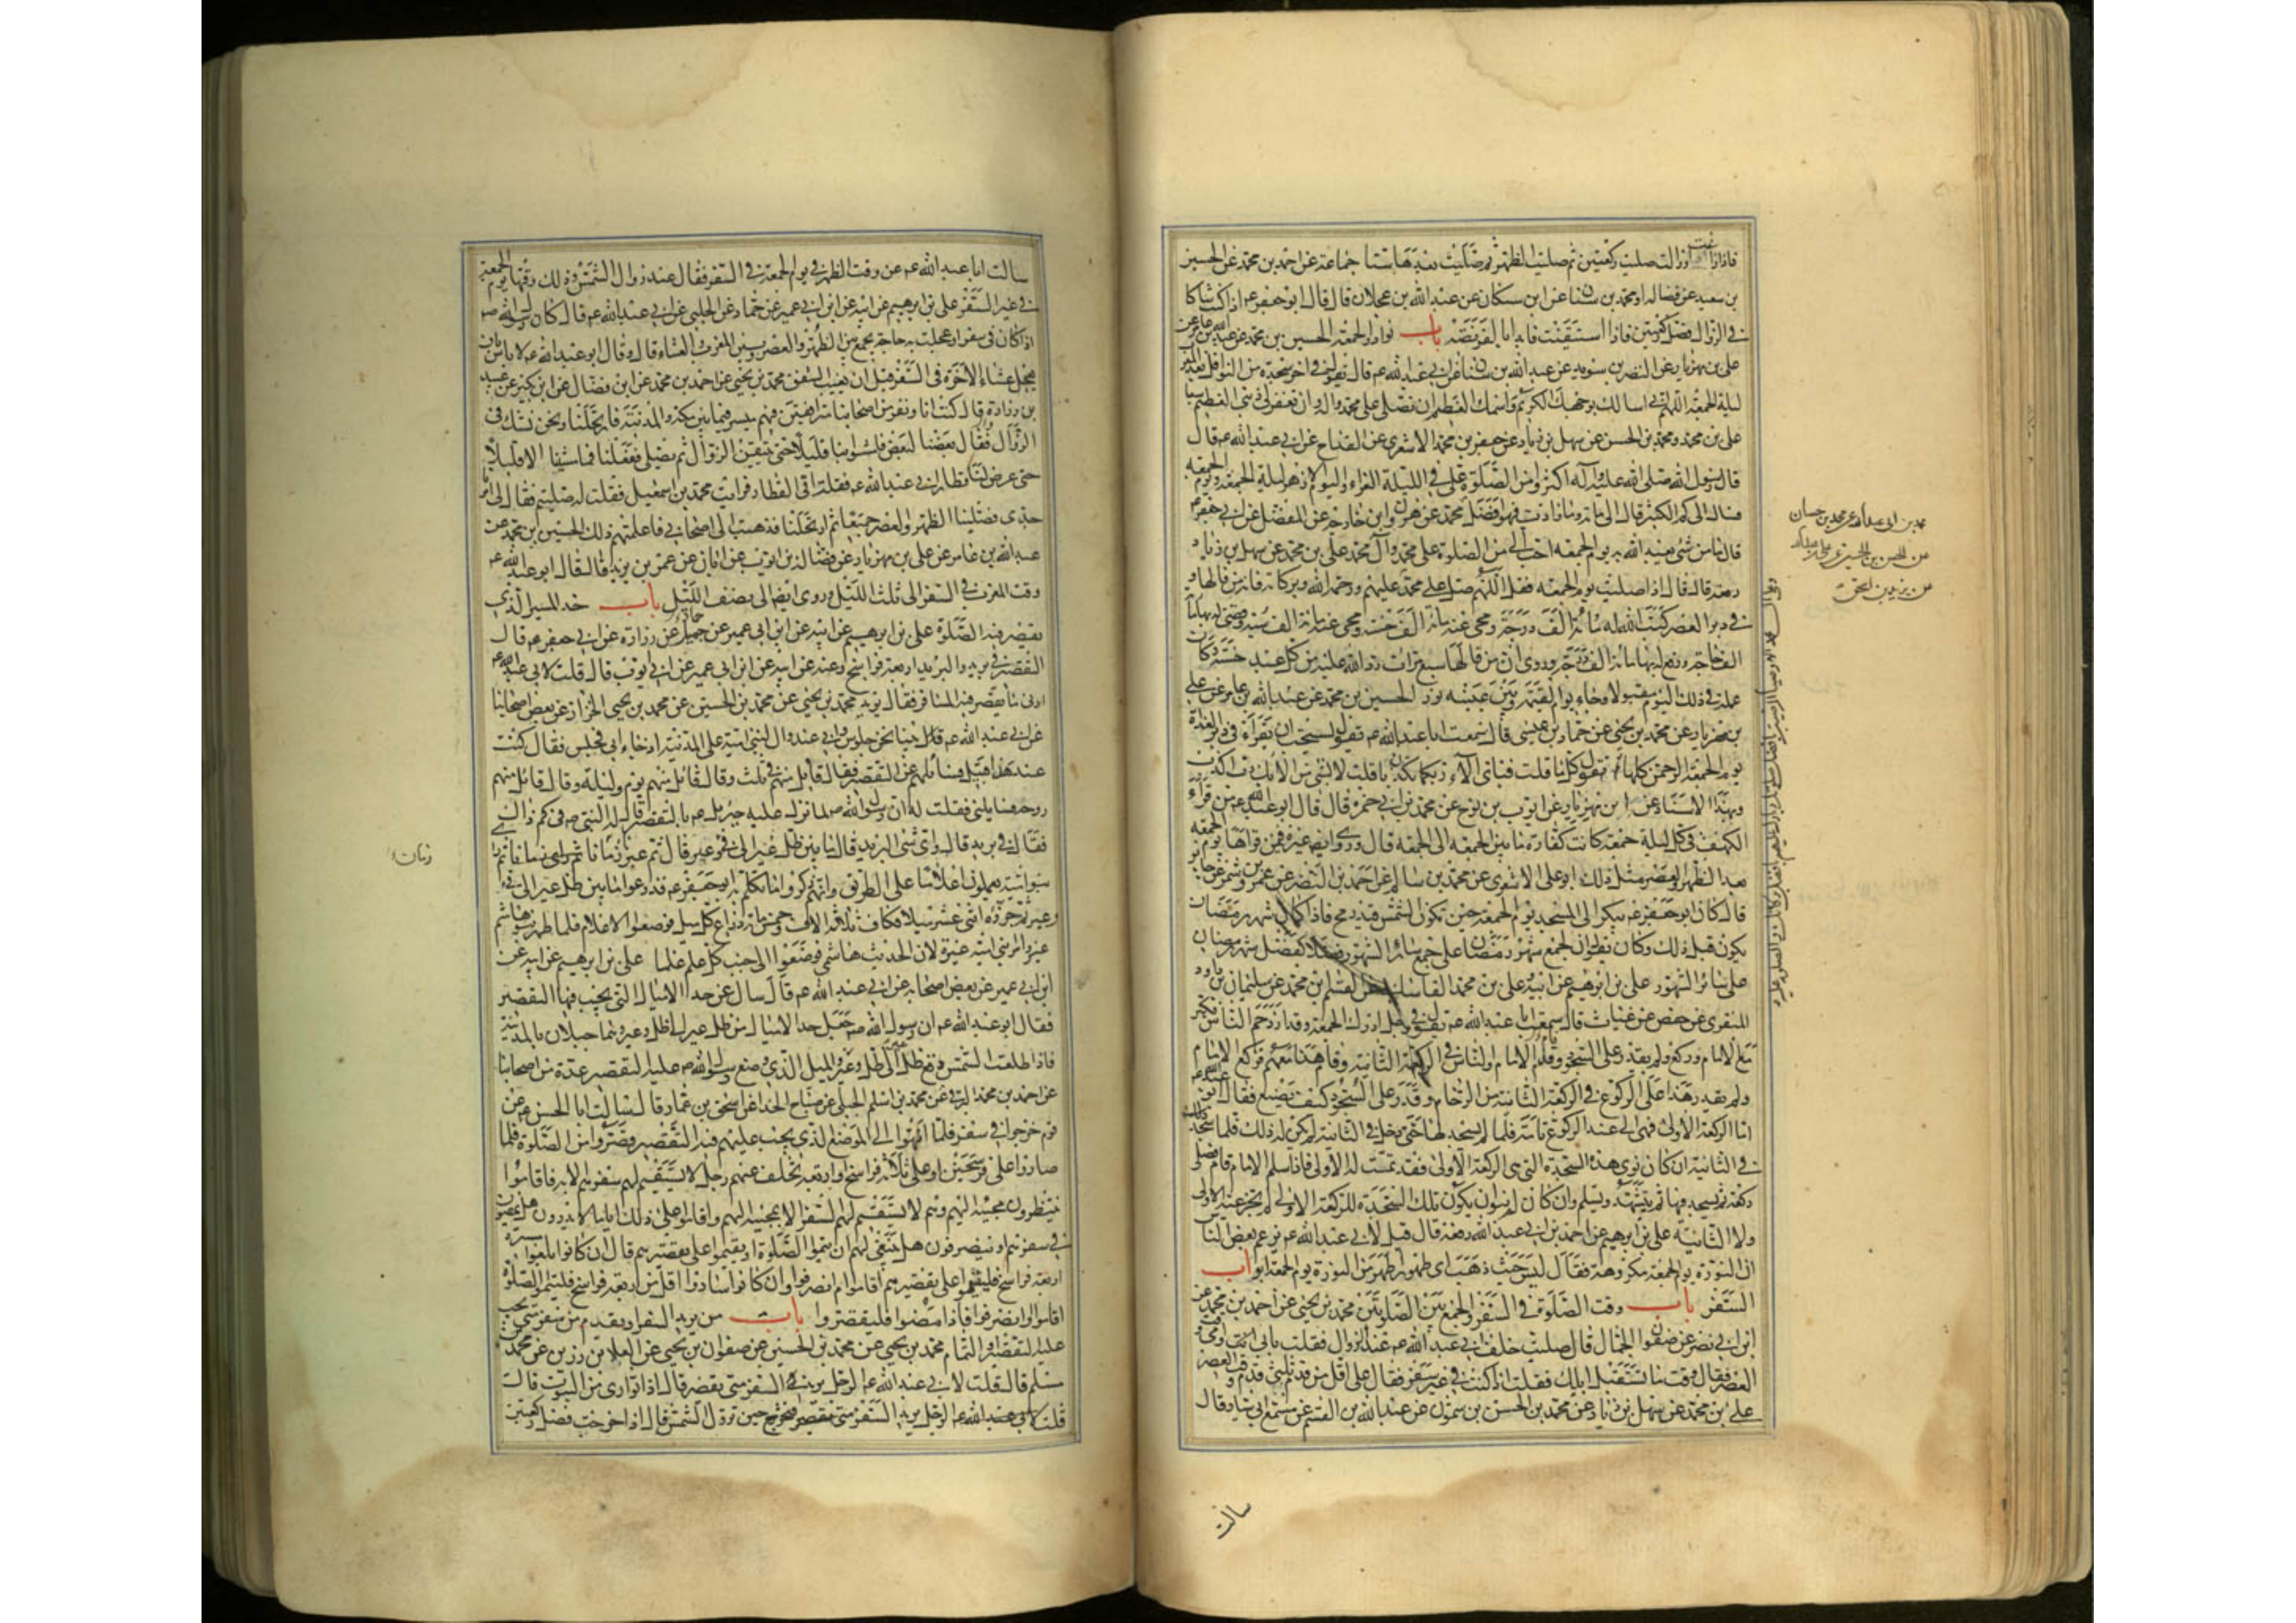 فاذا زاغت اوزالت صليت ركعتين ثم صليت الظهر ثم صليت بعدها ستا جماعة عن احمد بن محمد عن الحسين
بن سعيد عن فضاله او محمد بن سنان عن ابن مسكان عن عبد الله بن عجلان قال قال ابو جعفر ع اذا كنت شاكا
في الزوال فصل ركعتين فاذا استيقنت فابدا بالفريضة باب نوادر الجمعة الحسين بن محمد عن عبد الله بن عامر عن
علي بن مهزيار عن النضر بن سويد عن عبد الله بن سنان عن ابي عبد الله ع قال تقول في اخر سجدة من النوافل بعد المغرب
ليلة الجمعة اللهم اني اسالك بوجهك الكريم واسمك العظيم ان تصلي على محمد وآله وان تغفر لي ذنبي العظيم سبعا
علي بن محمد ومحمد بن الحسن عن سهل بن زياد عن جعفر بن محمد الاشعري عن القداح عن ابي عبد الله ع قال
قال رسول الله صلى الله عليه وآله اكثروا من الصلوة علي في الليلة الغراء واليوم الازهر ليلة الجمعة ويوم الجمعة
فسئل الى كم الكثير قال الى مائة وما زادت فهو افضل محمد عن هرون وابن خارجة عن المفضل عن ابي جعفر ع
قال ما من شئ يعبد الله به يوم الجمعة احب الي من الصلوة على محمد وآل محمد علي بن محمد عن سهل بن زياد
رفعه قال قال اذا صليت يوم الجمعة فقل اللهم صل على محمد عليهم ورحمة الله وبركاته فانه من قالها
في دبر العصر كتب الله له مائة الف حسنة ومحى عنه مائة الف سيئة وقضى له بها مائة
الف حاجة ورفع له بها مائة الف درجة وروي ان من قالها سبع مرات رد الله عليه من كل عبد حسنة وكان
عمله في ذلك اليوم مقبولا وجاء يوم القيمة وبين عينيه نور الحسين بن محمد عن عبد الله بن عامر عن علي
بن مهزيار عن محمد بن يحيى عن حماد بن عيسى قال سمعت ابا عبد الله ع يقول يستحب ان تقراء في دبر الغداة
يوم الجمعة الرحمن كلها ثم تقول كلما قلت فباي آلاء ربكما تكذبان قلت لا بشئ من الآئك رب اكذب
وبهذا الاسناد عن ابن مهزيار عن ايوب بن نوح عن محمد بن ابي حمزة قال قال ابو عبد الله ع من قراء
الكهف في كل ليلة جمعة كانت كفارة ما بين الجمعة الى الجمعة قال وروي ايضا غيره فمن قراها يوم الجمعة
بعد الظهر والعصر مثل ذلك ابو علي الاشعري عن محمد بن سالم عن احمد بن النضر عن عمرو بن شمر عن جابر
قال كان ابو جعفر ع يبكر الى المسجد يوم الجمعة حين تكون الشمس قيد رمح فاذا كان شهر رمضان
يكون قبل ذلك وكان يقول ان لجمع شهر رمضان على جمع سائر الشهور فضلا كفضل شهر رمضان
على سائر الشهور علي بن ابرهيم عن ابيه وعلي بن محمد القاساني عن القسم بن محمد عن سليمان بن داود
المنقري عن حفص بن غياث قال سمعت ابا عبد الله ع يقول في رجل ادرك الجمعة وقد ازدحم الناس فكبر
مع الامام وركع ولم يقدر على السجود وقام الامام والناس في الركعة الثانية وقام هذا معهم فركع الامام
ولم يقدر هذا على الركوع في الركعة الثانية من الزحام وقدر على السجود كيف يصنع فقال ابو عبد الله ع
اما الركعة الاولى فهي الى عند الركوع تامة فلما لم يسجد لها حتى دخل في الثانية لم يكن له ذلك فلما سجد
في الثانية ان كان نوى هذه السجدة التي هي الركعة الاولى فقد تمت له الاولى فاذا سلم الامام قام فصلى
ركعة ثم يسجد فيها ثم يتشهد ويسلم وان كان لم ينو ان يكون تلك السجدة للركعة الاولى لم يجز عنه الاولى
ولا الثانية علي بن ابرهيم عن احمد بن ابي عبد الله رفعه قال قيل لابي عبد الله ع يزعم بعض الناس
ان النورة يوم الجمعة مكروهة فقال ليس حيث ذهبت اي طهور اطهر من النورة يوم الجمعة ابواب
السفر باب وقت الصلوة في السفر والجمع بين الصلوتين محمد بن يحيى عن احمد بن محمد عن
ابن ابي نصر عن صفوان الجمال قال صليت خلف ابي عبد الله ع عند الزوال فقلت بابي انت وامي وقت
العصر فقال وقت ما تستقبل ابلك فقلت اذا كنت في غير سفر فقال على اقل من قدم ثلثي قدم وقت العصر
علي بن محمد عن سهل بن زياد عن محمد بن الحسن بن شمون عن عبد الله بن القسم عن مسمع ابي سيار قال
سالت
سالت ابا عبد الله ع عن وقت الظهر في يوم الجمعة في السفر فقال عند زوال الشمس وذلك وقتها يوم الجمعة
في غير السفر علي بن ابرهيم عن ابيه عن ابن ابي عمير عن حماد عن الحلبي عن ابي عبد الله ع قال كان رسول الله ص
اذا كان في سفر او عجلت به حاجة يجمع بين الظهر والعصر وبين المغرب والعشاء قال وقال ابو عبد الله ع لا باس بان
يعجل عشاء الآخرة في السفر قبل ان يغيب الشفق محمد بن يحيى عن احمد بن محمد عن ابن فضال عن ابن بكير عن عبيد
بن زرارة قال كنت انا ونفر من اصحابنا مترافقين فيهم ميسر فيما بين مكة والمدينة فارتحلنا ونحن نشك في
الزوال فقال بعضنا لبعض فامشوا بنا قليلا حتى نتيقن الزوال ثم نصلي ففعلنا فما مشينا الا قليلا
حتى عرض لنا قطار ابي عبد الله ع فقلت اتى القطار فرايت محمد بن اسمعيل فقلت له صليتم فقال لي امرنا
جدي فصلينا الظهر والعصر جميعا ثم ارتحلنا فذهبت الى اصحابي فاعلمتهم ذلك الحسين بن محمد عن
عبد الله بن عامر عن علي بن مهزيار عن فضالة بن ايوب عن ابان عن عمر بن يزيد قال قال ابو عبد الله ع
وقت المغرب في السفر الى ثلث الليل وروى ايضا الى نصف الليل باب حد المسير الذي
يقصر فيه الصلوة علي بن ابرهيم عن ابيه عن ابن ابي عمير عن جميل عن زرارة عن ابي جعفر ع قال
التقصير في بريد والبريد اربعة فراسخ وعنه عن ابيه عن ابن ابي عمير عن ابي ايوب قال قلت لابي عبد الله ع
ادنى ما يقصر فيه المسافر فقال بريد محمد بن يحيى عن محمد بن الحسين عن محمد بن يحيى الخزاز عن بعض اصحابنا
عن ابي عبد الله ع قال بينا نحن جلوس وابي عند وال لبني امية على المدينة اذ جاء ابي فجلس فقال كنت
عند هذا قبيل فسائلهم عن التقصير فقال قائل منهم في ثلث وقال قائل منهم يوم وليلة وقال قائل منهم
روحة فسالني فقلت له ان رسول الله ص لما نزل عليه جبرئيل ع بالتقصير قال له النبي ص في كم ذاك
فقال في بريد قال واي شئ البريد قال ما بين ظل عير الى فئ وعير قال ثم عبرنا زمانا ثم راى بنو امية
يعملون اعلاما على الطريق وانهم ذكروا ما تكلم به ابو جعفر ع فذرعوا ما بين ظل عير الى فئ
وعير ثم جزؤه اثنى عشر ميلا فكان ثلاثة الاف وخمس مائة ذراع كل ميل فوضعوا الاعلام فلما ظهر بنو هاشم
غيروا امر بني امية غيرة لان الحديث هاشمي فوضعوا الى جنب كل علم علما علي بن ابرهيم عن ابيه عن
ابن ابي عمير عن بعض اصحابه عن ابي عبد الله ع قال سال عن حد الاميال التي يجب فيها التقصير
فقال ابو عبد الله ع ان رسول الله ص جعل حد الاميال من ظل عير الى ظل وعير وهما جبلان بالمدينة
فاذا طلعت الشمس وقع ظل عير الى ظل وعير وهو الميل الذي وضع رسول الله ص عليه التقصير عدة من اصحابنا
عن احمد بن محمد البرقي عن محمد بن اسلم الجبلي عن صباح الحذاء عن اسحق بن عمار قال سالت ابا الحسن ع عن
قوم خرجوا في سفر فلما انتهوا الى الموضع الذي يجب عليهم فيه التقصير وقصروا من الصلوة فلما
صاروا على فرسخين او على ثلاثة فراسخ او اربعة تخلف عنهم رجل لا يستقيم لهم سفرهم الا به فاقاموا
ينتظرون مجيئه اليهم وهم لا يستقيم لهم السفر الا بمجيئه اليهم واقاموا على ذلك اياما لا يدرون هل يمضون
في سفرهم او ينصرفون هل ينبغي لهم ان يتموا الصلوة او يقيموا على تقصيرهم قال ان كانوا بلغوا مسيرة
اربعة فراسخ فليقيموا على تقصيرهم اقاموا ام انصرفوا وان كانوا ساروا اقل من اربعة فراسخ فليتموا الصلوة
اقاموا او انصرفوا فاذا مضوا فليقصروا باب من يريد السفر او يقدم من سفر متى يجب
عليه التقصير او التمام محمد بن يحيى عن محمد بن الحسين عن صفوان بن يحيى عن العلا بن رزين عن محمد بن
مسلم قال قلت لابي عبد الله ع الرجل يريد السفر متى يقصر قال اذا توارى من البيوت قال
قلت لابي عبد الله ع الرجل يريد السفر متى يقصر فيخرج حين تزول الشمس قال اذا خرجت فصل ركعتين